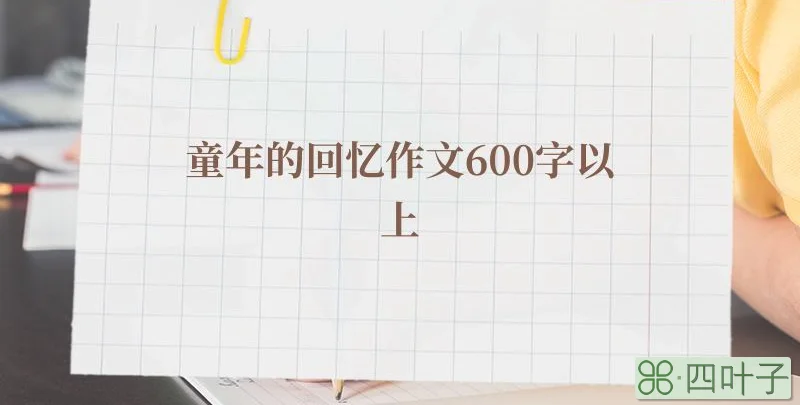 童年的回忆作文600字以
上
⌘·四叶子